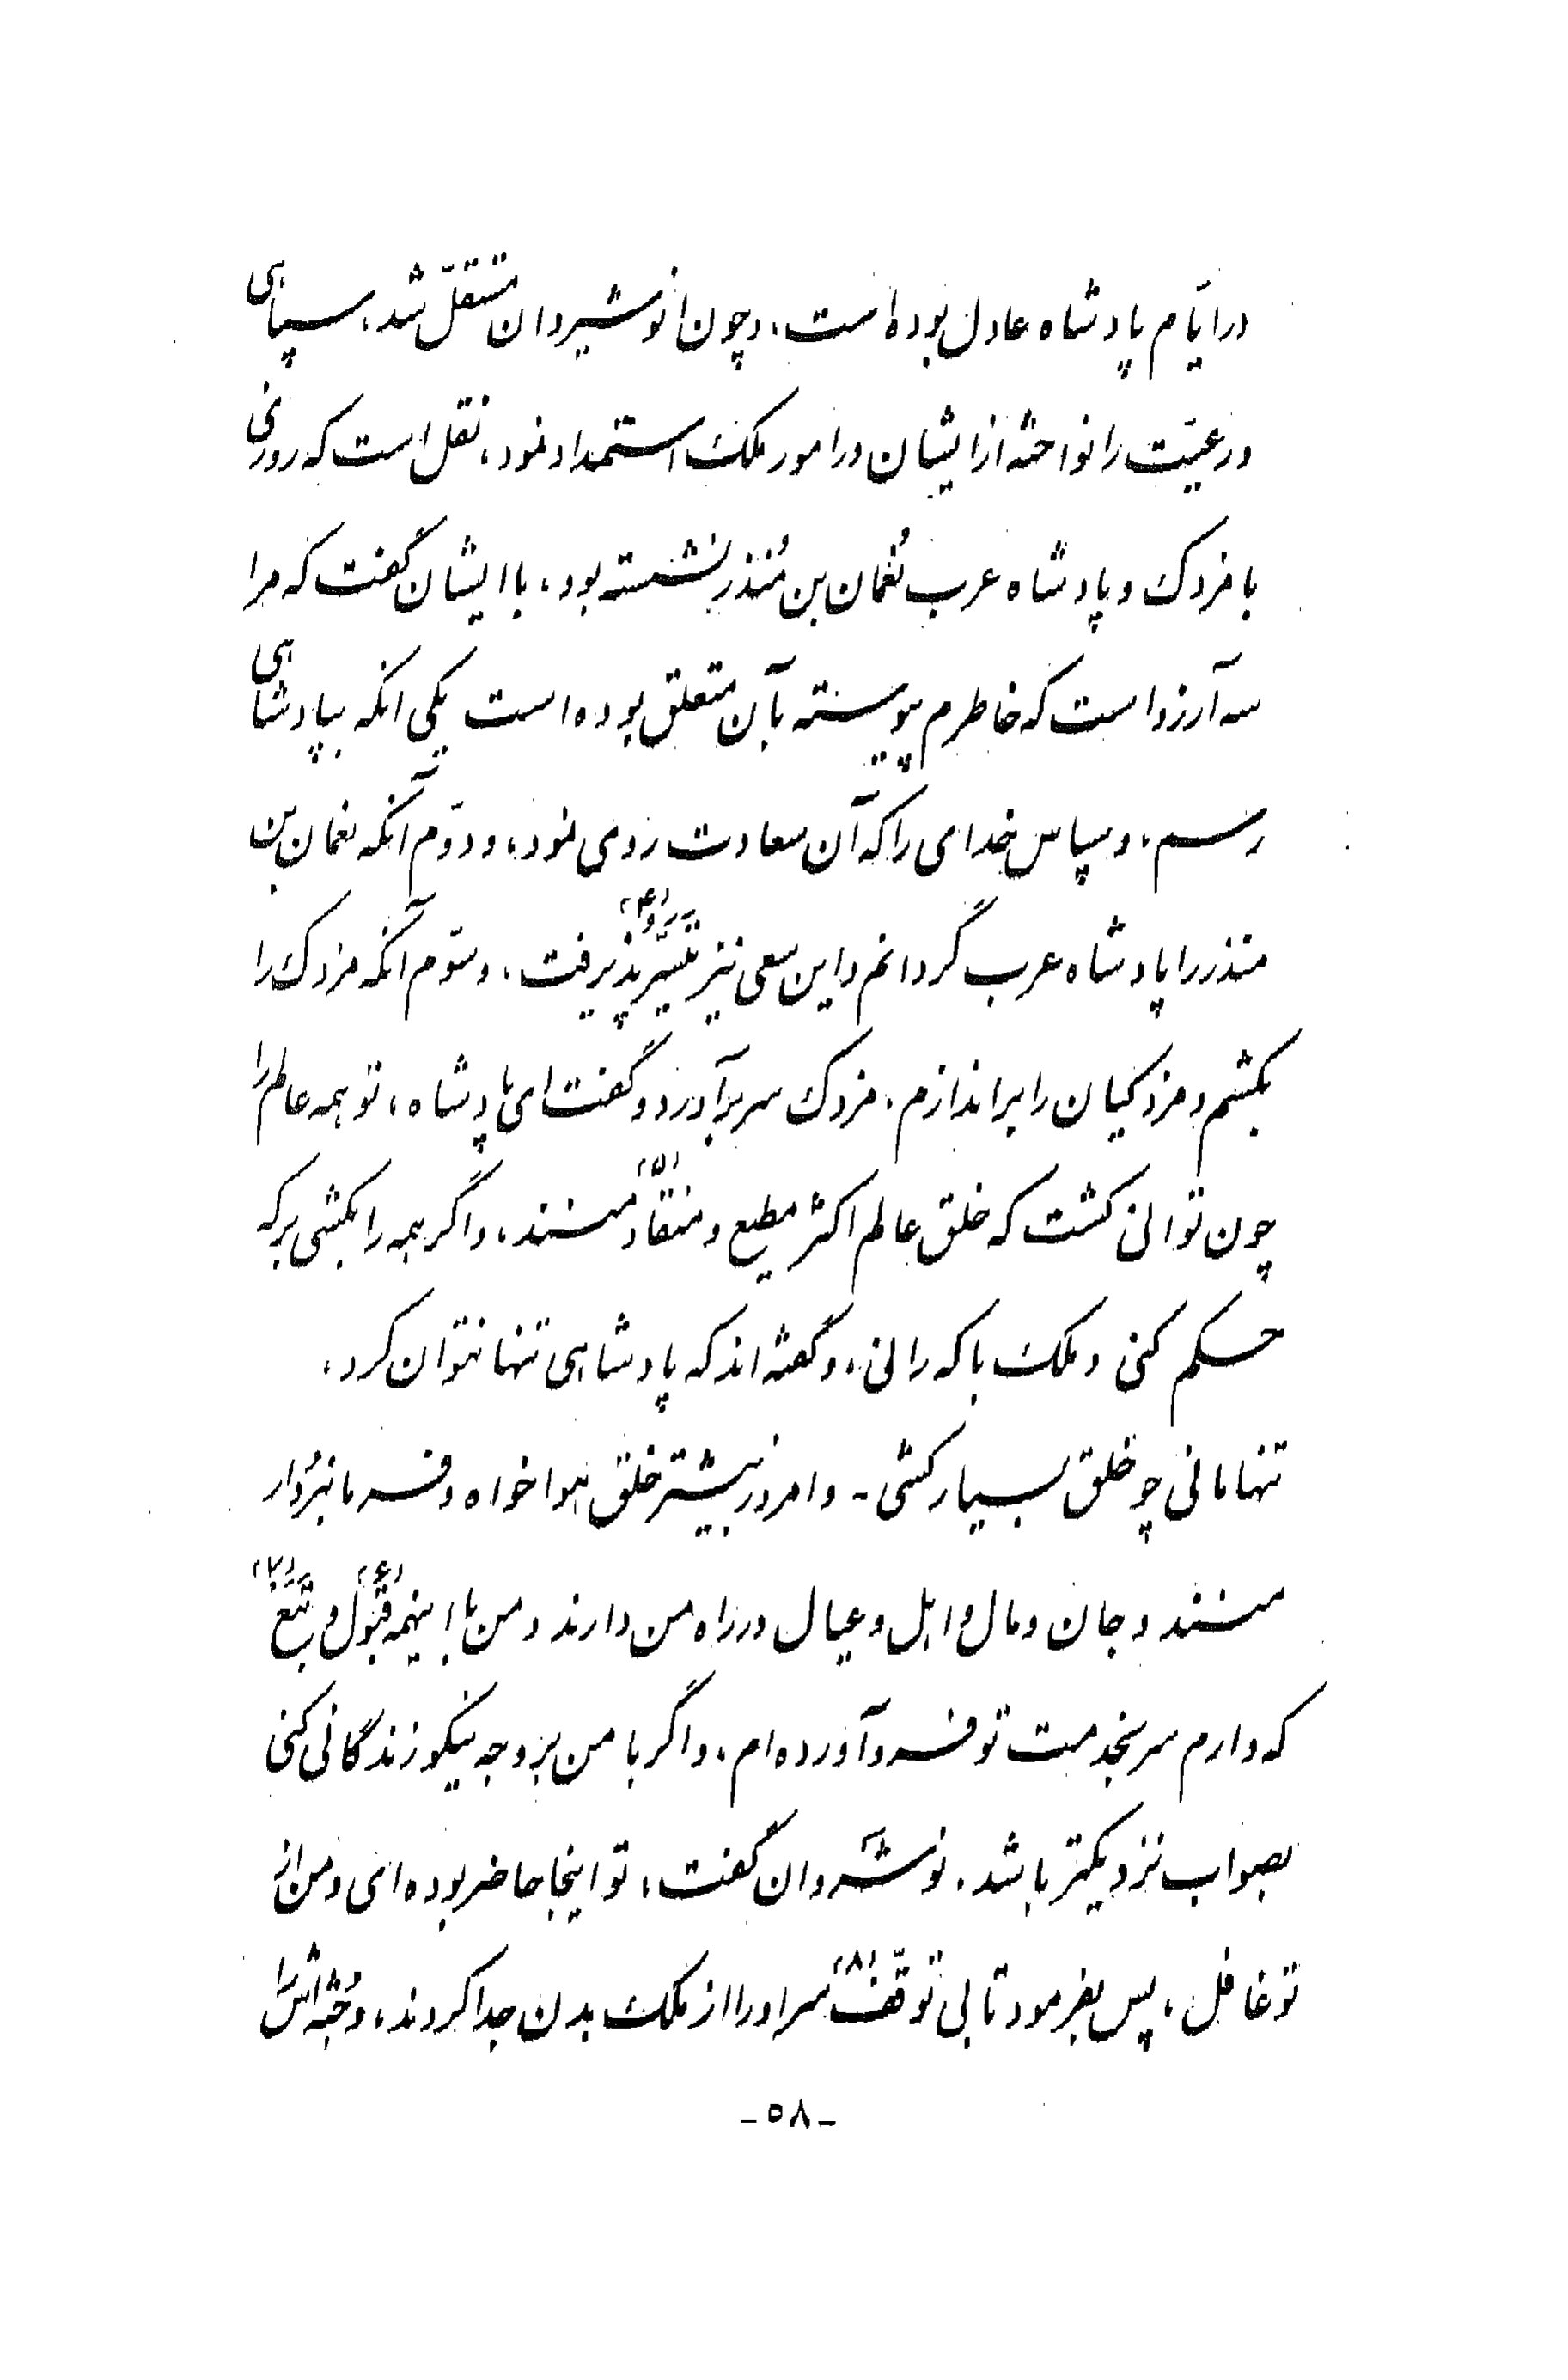 در ایّام پادشاه عادل بوده است، و چون انوشیروان مستقلّ شد، سپاهی
و رعیّت را نواخته از ایشان در امور ملک استمداد نمود، نقل است که روزی
با مزدک و پادشاه عرب نُعمان بن مُنذر نشسته بود، با ایشان گفت که مرا
سه آرزو است که خاطرم پیوسته بآن متعلق بوده است یکی آنکه بپادشاهی
رسم، و سپاس خدای را که آن سعادت روی نمود، و دوّم آنکه نعمان بن
منذر را پادشاه عرب گردانم و این سعی نیز تَیَسُّر (۴) پذیرفت، و سوّم آنکه مزدک را
بکشم و مزدکیان را براندازم، مزدک سر برآورد و گفت ای پادشاه، تو همه عالم را
چون توانی کشت که خلق عالم اکثر مطیع و منقاد (۵) منند، و اگر همه را بکشی بر که
حکم کنی و ملک با که رانی، و گفته اند که پادشاهی تنها نتوان کرد،
تنها مانی چو خلق بسیار کشی - و امروز بیشتر خلق هواخواه و فرمانبردار
منند و جان و مال و اهل و عیال در راه من دارند و من با اینهمه قبول (۶) و تَبَع (۷)
که دارم سر بخدمت تو فرو آورده ام، و اگر با من بر وجه نیکو زندگانی کنی
بصواب نزدیکتر باشد، نوشروان گفت، تو اینجا حاضر بوده ای و من از
تو غافل، پس بفرمود تا بی توقّف (۸) سر او را از ملک بدن جدا کردند، و جُثّه اش را
-۵۸-